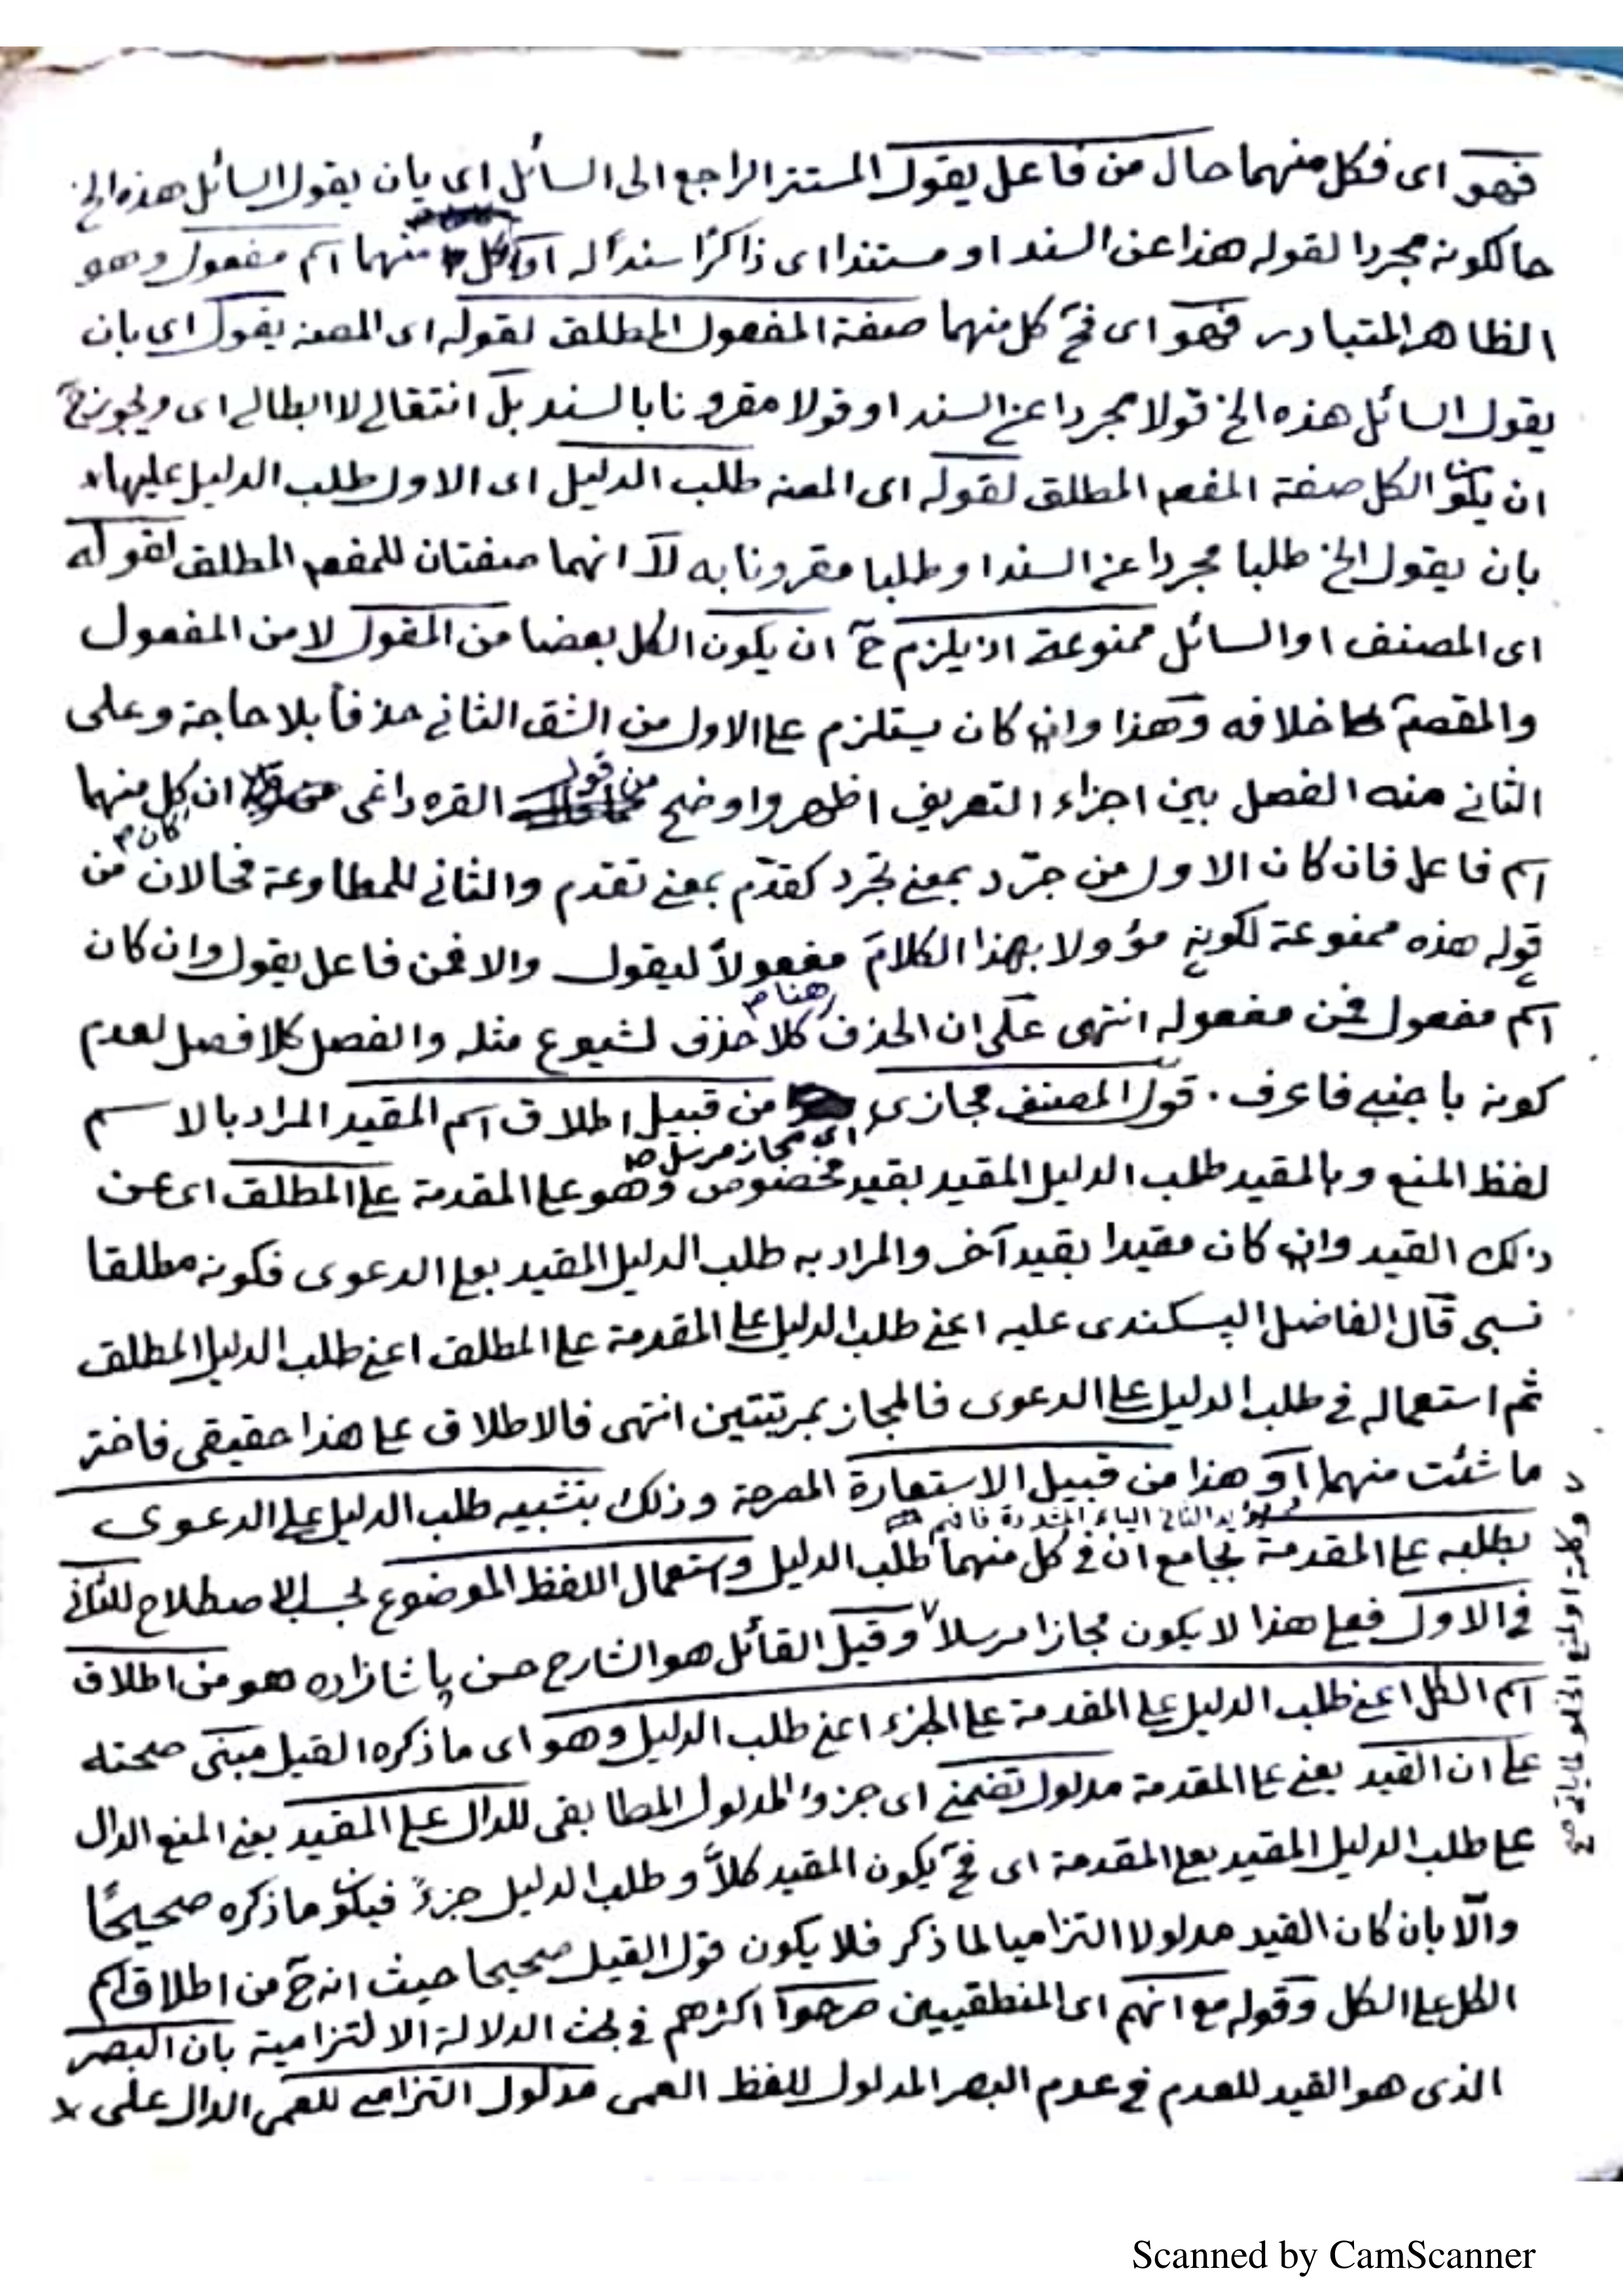 فهو اى فكل منهما حال من فاعل يقول المستتر الراجع الى السائل اى بان يقول السائل هذه الخ
حالكونه مجردا لقوله هذا عن السند او مستندا اى ذاكرًا سندًا له او كل منهما اسم مفعول وهو
الظاهر المتبادر فهو اى فح كل منهما صفة المفعول المطلق لقوله اى المصنه يقول اى بان
يقول السائل هذه الخ قولا مجردا عن السند او قولا مقرونا بالسند بل انتقالے لا ابطالے اى ويجوز ح
ان يكون الكل صفة المفعم المطلق لقوله اى المصنه طلب الدليل اى الاول طلب الدليل عليها
بان يقول الخ طلبا مجردا عن السند او طلبا مقرونا به لا انهما صفتان للمفعم المطلق لقوله
اى المصنف او السائل ممنوعة اذ يلزم ح ان يكون الكل بعضا من المقول لا من المفعول
والمقصم خلافه وهذا وان كان يستلزم على الاول من الشق الثانے حذفاً بلا حاجة وعلى
الثانے منه الفصل بين اجزاء التعريف اظهر واوضح من قول القره داغى ان كل منهما
اسم فاعل فان كان الاول من جرّد بمعنے تجرد كقدّم بمعنے تقدم والثانے للمطاوعة فحالان كان م من
قوله هذه ممنوعة لكونه مؤولا بهذا الكلام مفعولاً ليقول والا فمن فاعل يقول وان كان
اسم مفعول فمن مفعوله انتهى على ان الحذف هنا م كلا حذف لشيوع مثله والفصل كلا فصل لعدم
كونه باجنبے فاعرف . قول المصنف مجازى اى مجاز مرسل من قبيل اطلاق اسم المقيد المراد بالاسم
لفظ المنع وبالمقيد طلب الدليل المقيد بقيد مخصوص وهو على المقدمة على المطلق اى عن
ذلك القيد وان كان مقيدا بقيد آخر والمراد به طلب الدليل المقيد بعلى الدعوى فكونه مطلقا
نسبى قال الفاضل البسكندى عليه اعنے طلب الدليل على المقدمة على المطلق اعنے طلب الدليل المطلق
ثم استعماله فى طلب الدليل على الدعوى فالمجاز بمرتبتين انتهى فالاطلاق على هذا حقيقى فاختر
ما شئت منهما او هذا من قبيل الاستعارة المصرحة وذلك بتشبيه طلب الدليل على الدعوى
يؤيد الثانى الياء المشددة فافهم
بطلبه على المقدمة بجامع ان فى كل منهما طلب الدليل واستعمال اللفظ الموضوع بحسب الاصطلاح للثانے
فى الاول فعلى هذا لا يكون مجازا مرسلا وقيل القائل هو الشارح حسن پاشا زاده هو من اطلاق
اسم الكل اعنے طلب الدليل على المقدمة على الجزء اعنے طلب الدليل وهو اى ما ذكره القيل مبنى صحته
على ان القيد يعنے على المقدمة مدلول تضمنے اى جزء المدلول المطابقى للدال على المقيد يعنے المنع الدال
على طلب الدليل المقيد بعلى المقدمة اى فح يكون المقيد كلاًّ و طلب الدليل جزءً فيكون ما ذكره صحيحًا
والّا بان كان القيد مدلولا التزاميا لما ذكر فلا يكون قول القيل صحيحا حيث انه ح من اطلاق اسم
الكل على الكل وقوله مع انهم اى المنطقيين صرحوا اكثرهم فى بحث الدلالة الالتزامية بان البصر
الذى هو القيد للعدم فى عدم البصر المدلول للفظ العمى مدلول التزامے للعمى الدال على
وكلمة او لمنع الخلو
Scanned by CamScanner